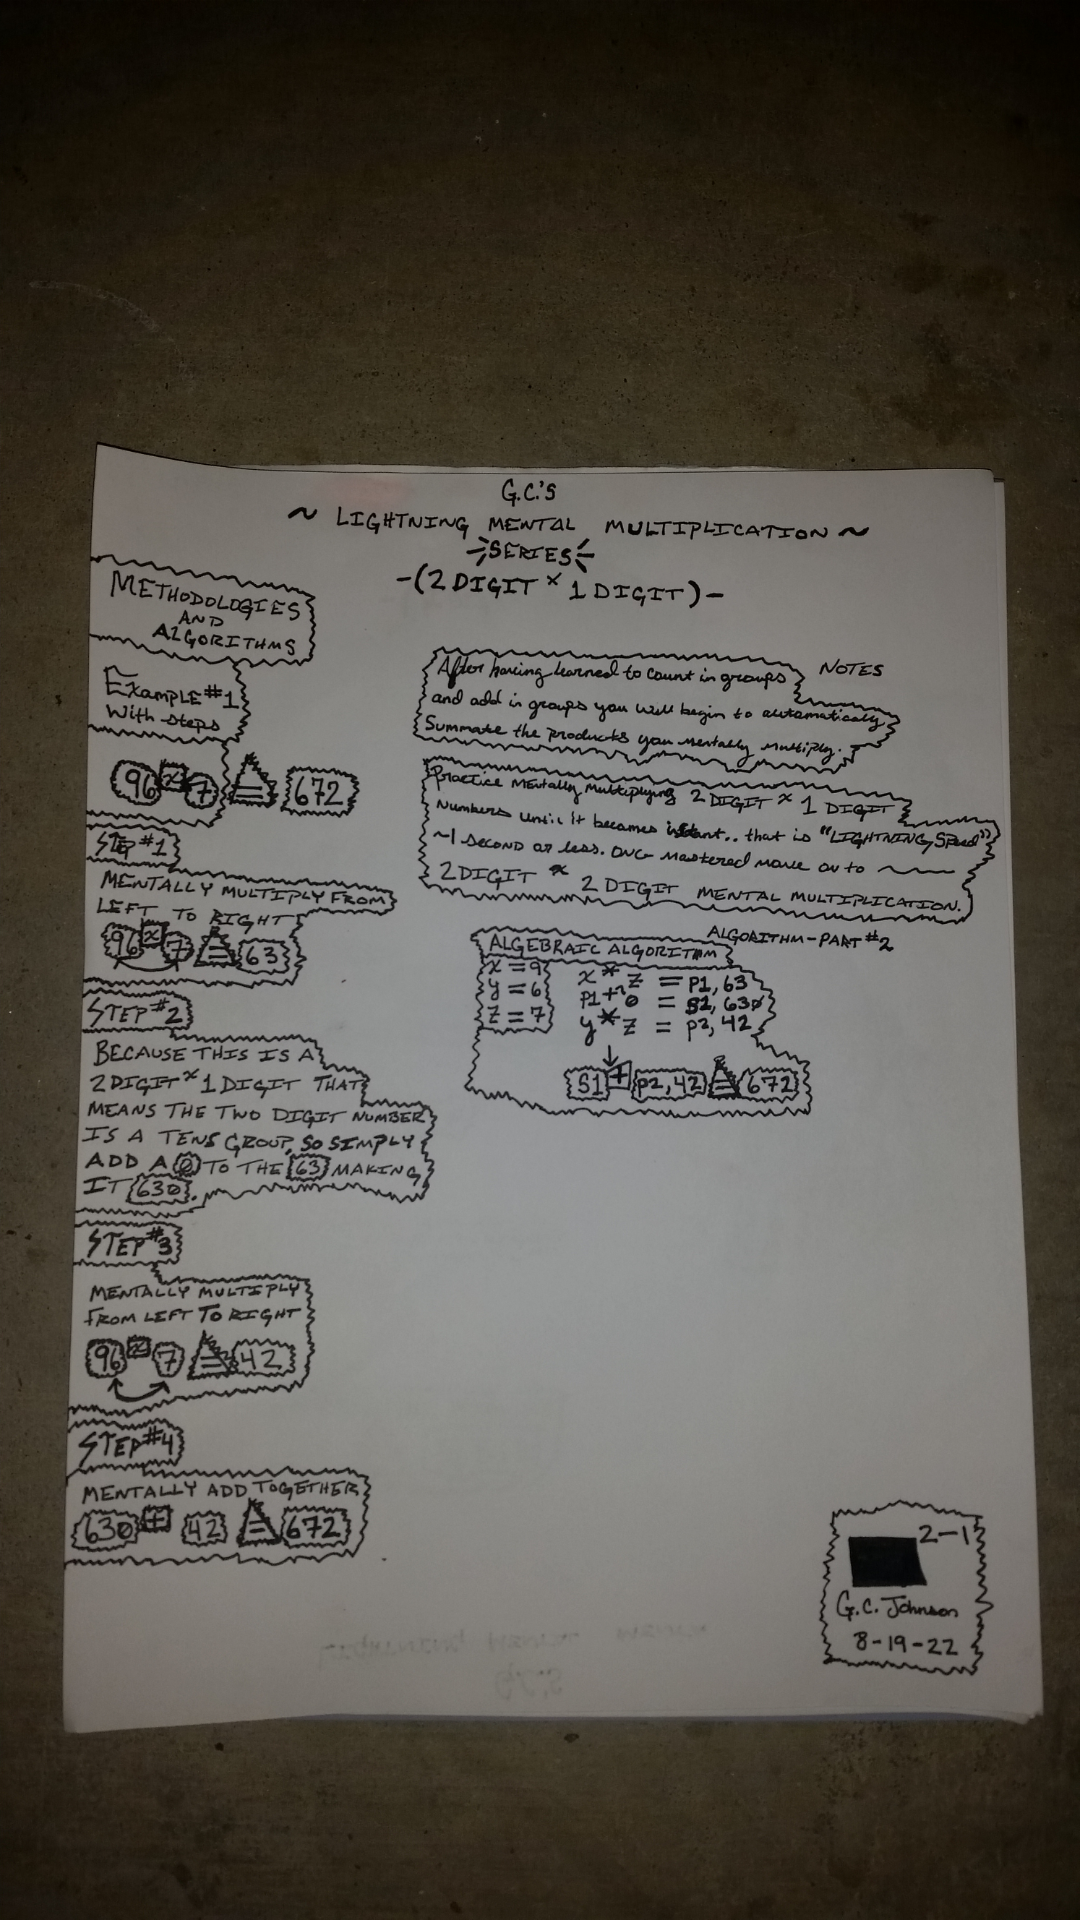 G.C.'S
~ LIGHTNING MENTAL MULTIPLICATION ~
SERIES
-(2 DIGIT × 1 DIGIT)-
METHODOLOGIES
AND
ALGORITHMS
Example #1
With steps
96 × 7 = 672
STEP #1
MENTALLY MULTIPLY FROM
LEFT TO RIGHT
96 × 7 = 63
STEP #2
BECAUSE THIS IS A
2 DIGIT × 1 DIGIT THAT
MEANS THE TWO DIGIT NUMBER
IS A TENS GROUP, SO SIMPLY
ADD A 0 TO THE 63 MAKING
IT 630.
STEP #3
MENTALLY MULTIPLY
FROM LEFT TO RIGHT
96 × 7 = 42
STEP #4
MENTALLY ADD TOGETHER
630 + 42 = 672
NOTES
After having learned to count in groups
and add in groups you will begin to automatically
Summate the products you mentally multiply.
Practice mentally multiplying 2 DIGIT × 1 DIGIT
numbers until it becomes instant.. that is "LIGHTNING Speed"
~1 second or less. Once mastered move on to
2 DIGIT × 2 DIGIT MENTAL MULTIPLICATION.
ALGORITHM-PART #2
ALGEBRAIC ALGORITHM
x = 9
y = 6
z = 7
x * z = P1, 63
P1 + 0 = S1, 630
y * z = P2, 42
S1 + P2, 42 = 672
2-1
G.C. Johnson
8-19-22